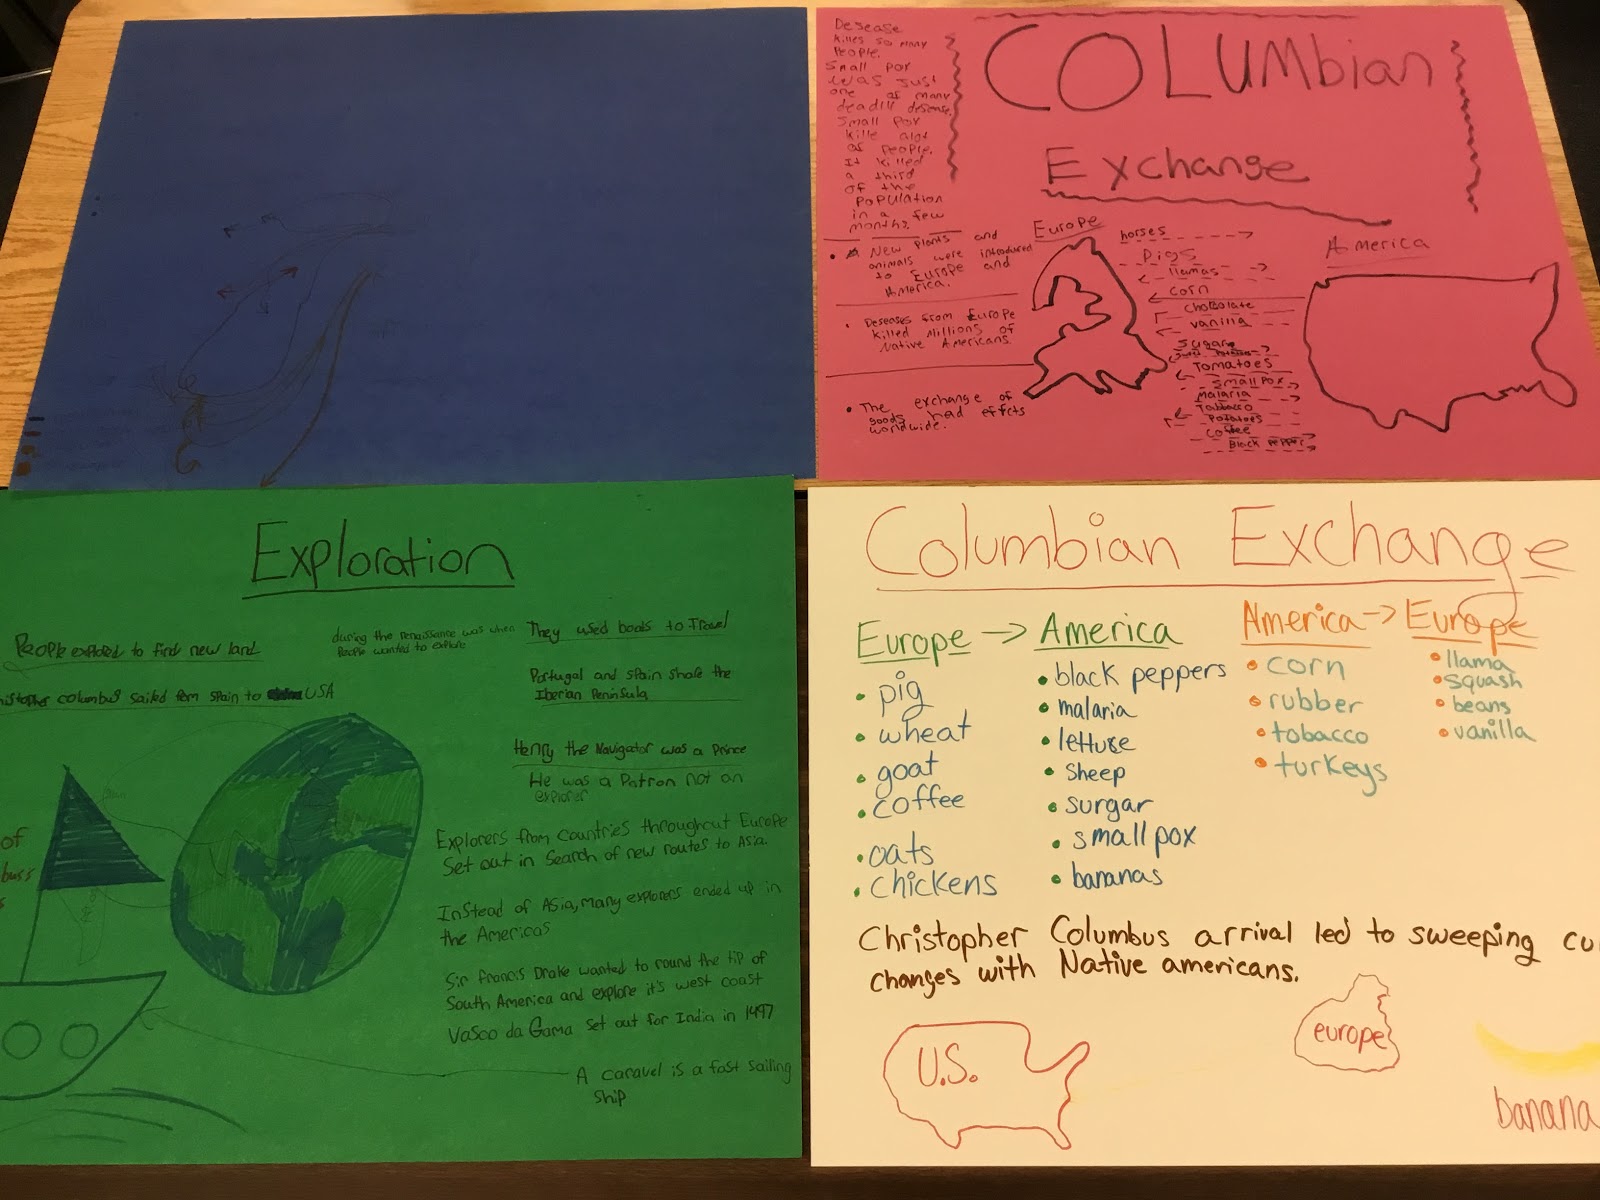 Desease
killes so many
People.
Small pox
was just
one of many
deadly desease.
Small pox
kille alot
of People.
It killed
a third
of the
POPULation
in a few
months
COLUMbian
Exchange
New plants and
animals were introduced
to Europe and
America.
Deseases from Europe
killed Millions of
Native Americans
The exchange of
goods had effcts
worldwide.
Europe
America
horses
Pigs
llamas
corn
chocolate
vanilla
Sugar
Tomatoes
Small Pox
Malaria
Tobbacco
Potatoes
Coffee
Black Pepper
Exploration
People exploded to find new land
during the renaissance was when
People wanted to explore
They used boats to Travel
columbus sailed fem spain to USA
Portugal and spain share the
Iberian Peninsula,
Henry the Navigator was a Prince
He was a Patron not an
explorer
of
Explorers from countries throughout Europe
Set out in Search of new routes to Asia.
Instead of Asia, many explorers ended up in
the Americas
Sir Francis Drake wanted to round the tip of
South America and explore it's west coast
Vasco da Gama set out for India in 1497
A caravel is a fast sailing
ship
Columbian Exchange
Europe → America
pig
wheat
goat
coffee
oats
chickens
black peppers
malaria
lettuce
sheep
surgar
small pox
bananas
America → Europe
corn
rubber
tobacco
turkeys
llama
squash
beans
vanilla
Christopher Columbus arrival led to sweeping cu
changes with Native americans.
U.S.
europe
banana